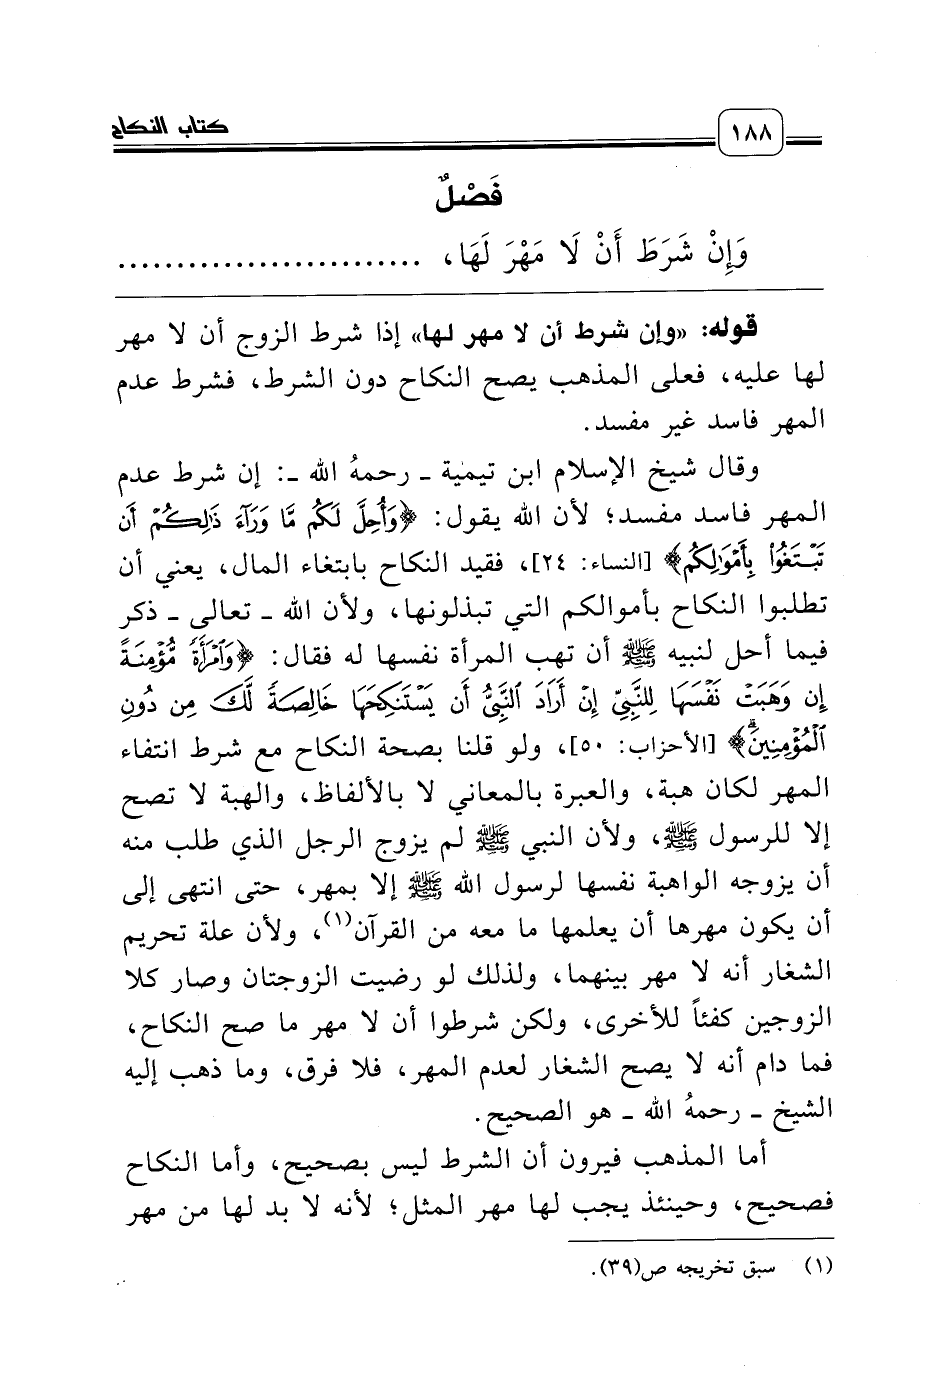 ١٨٨
كتاب النكاح
فَصْلٌ
وَإِنْ شَرَطَ أَنْ لَا مَهْرَ لَهَا، ..........................
قوله: «وإن شرط أن لا مهر لها» إذا شرط الزوج أن لا مهر
لها عليه، فعلى المذهب يصح النكاح دون الشرط، فشرط عدم
المهر فاسد غير مفسد.
وقال شيخ الإسلام ابن تيمية ـ رحمهُ الله ـ: إن شرط عدم
المهر فاسد مفسد؛ لأن الله يقول: ﴿وَأُحِلَّ لَكُم مَّا وَرَآءَ ذَٰلِكُمْ أَن
تَبْتَغُوا۟ بِأَمْوَٰلِكُم﴾ [النساء: ٢٤]، فقيد النكاح بابتغاء المال، يعني أن
تطلبوا النكاح بأموالكم التي تبذلونها، ولأن الله ـ تعالى ـ ذكر
فيما أحل لنبيه ﷺ أن تهب المرأة نفسها له فقال: ﴿وَٱمْرَأَةً مُّؤْمِنَةً
إِن وَهَبَتْ نَفْسَهَا لِلنَّبِيِّ إِنْ أَرَادَ ٱلنَّبِيُّ أَن يَسْتَنكِحَهَا خَالِصَةً لَّكَ مِن دُونِ
ٱلْمُؤْمِنِينَۗ﴾ [الأحزاب: ٥٠]، ولو قلنا بصحة النكاح مع شرط انتفاء
المهر لكان هبة، والعبرة بالمعاني لا بالألفاظ، والهبة لا تصح
إلا للرسول ﷺ، ولأن النبي ﷺ لم يزوج الرجل الذي طلب منه
أن يزوجه الواهبة نفسها لرسول الله ﷺ إلا بمهر، حتى انتهى إلى
أن يكون مهرها أن يعلمها ما معه من القرآن(١)، ولأن علة تحريم
الشغار أنه لا مهر بينهما، ولذلك لو رضيت الزوجتان وصار كلا
الزوجين كفئاً للأخرى، ولكن شرطوا أن لا مهر ما صح النكاح،
فما دام أنه لا يصح الشغار لعدم المهر، فلا فرق، وما ذهب إليه
الشيخ ـ رحمهُ الله ـ هو الصحيح.
أما المذهب فيرون أن الشرط ليس بصحيح، وأما النكاح
فصحيح، وحينئذ يجب لها مهر المثل؛ لأنه لا بد لها من مهر
(١) سبق تخريجه ص(٣٩).